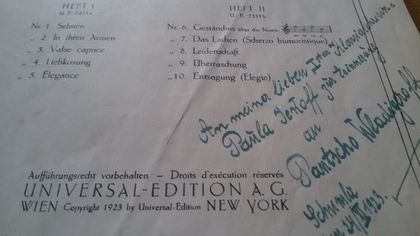 HEFT I
U. E. 7211a
HEFT II
U. E. 7211b
Nr. 1. Sehnen
„ 2. In ihren Armen
„ 3. Valse caprice
„ 4. Liebkosung
„ 5. Elegance
Nr. 6. Geständnis über die Noten:
„ 7. Das Lachen (Scherzo humoristique)
„ 8. Leidenschaft
„ 9. Überraschung
„ 10. Entsagung (Elegie)
An meine lieben
Paula zur Erinnerung
an
Pantscho Wladigeroff
1923.
Aufführungsrecht vorbehalten — Droits d'exécution réservés
UNIVERSAL-EDITION A. G.
WIEN Copyright 1923 by Universal-Edition NEW YORK